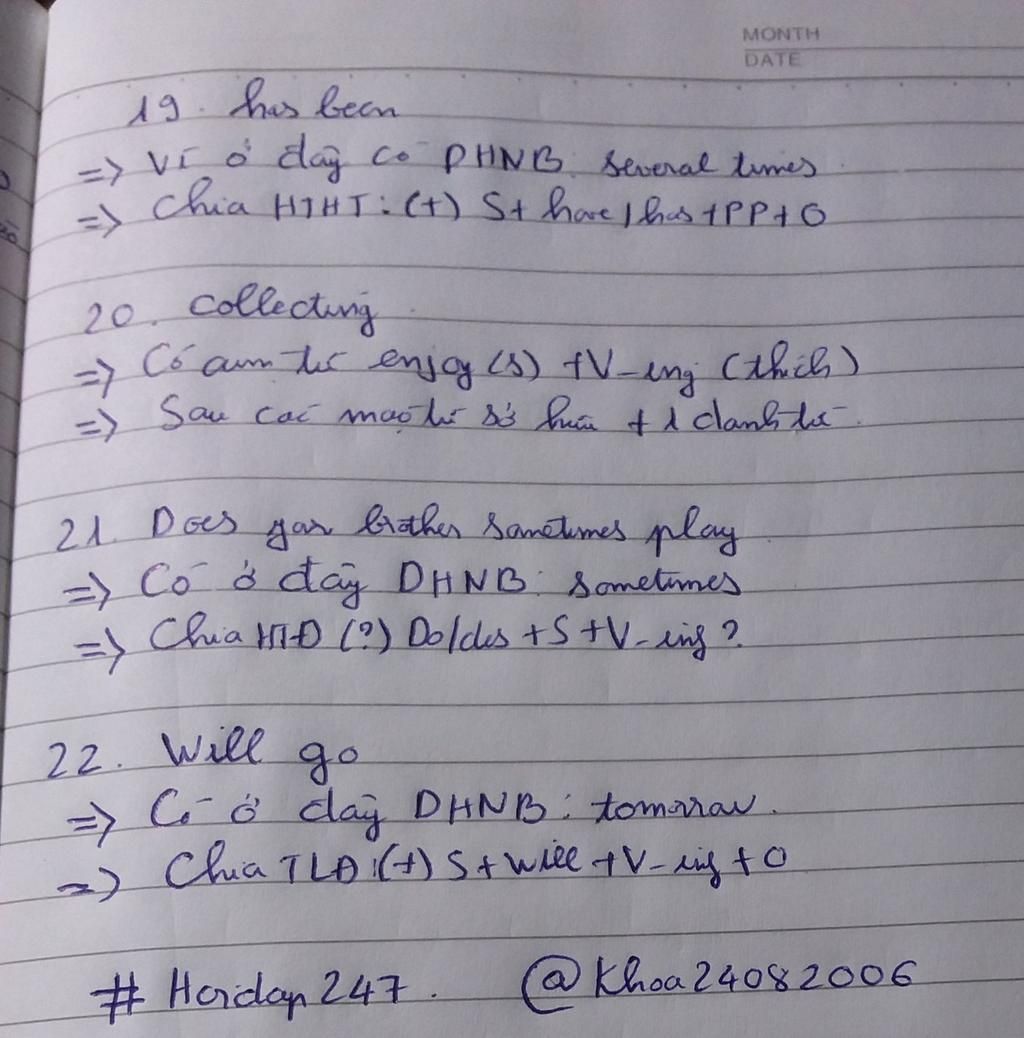 MONTH
DATE
19. has been
=> Vì ở đây có DHNB: several times.
=> Chia HTHT: (+) S + have / has + PP + O
20. collecting
=> Có cụm từ enjoy (s) + V-ing (thích)
=> Sau các mạo từ sở hữu + 1 danh từ.
21. Does your brother sometimes play
=> Có ở đây DHNB: sometimes
=> Chia HTĐ (?) Do/does + S + V-ing?
22. Will go
=> Có ở đây DHNB: tomorrow.
=> Chia TLĐ: (+) S + Will + V-ing + O
# Hoidap247. @Khoa24082006